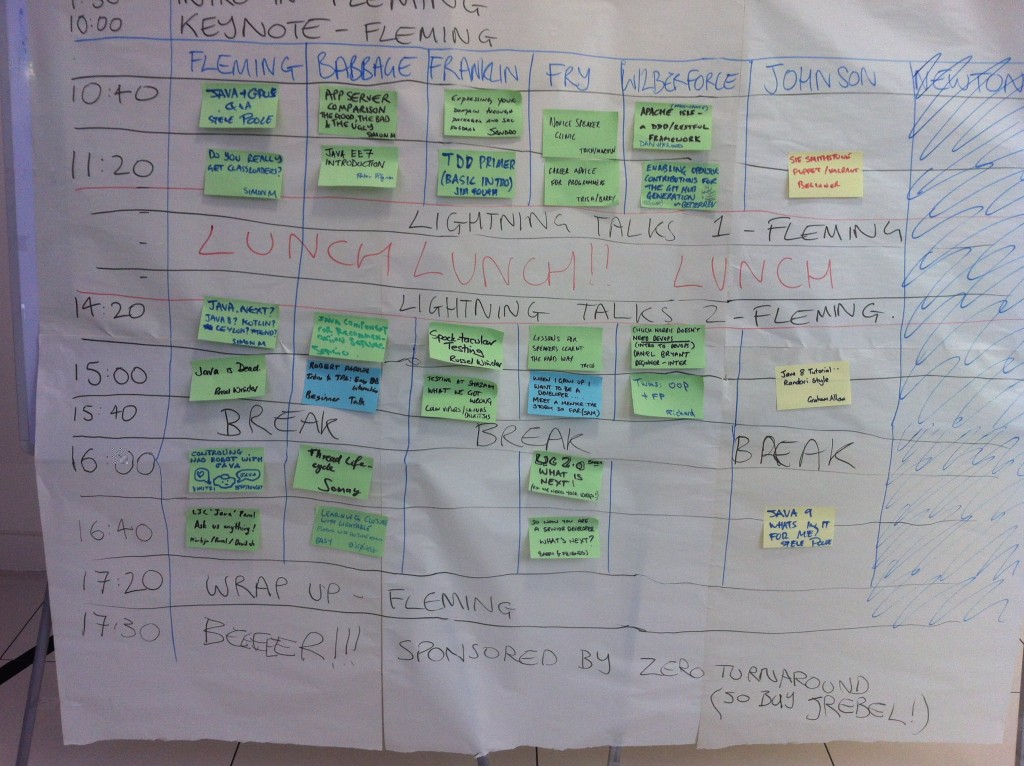 INTRO IN FLEMING
10:00 KEYNOTE - FLEMING
FLEMING BABBAGE FRANKLIN FRY WILBERFORCE JOHNSON NEWTON
10:40
JAVA + GPUS
Q&A
STEVE POOLE
APP SERVER
COMPARISON
THE GOOD, THE BAD
& THE UGLY
SIMON M
EXPRESSING YOUR
DOMAIN THROUGH
PACKAGES AND
SANDRO
NOVICE SPEAKER
CLINIC
TRISH/MARTIJN
APACHE ISIS -
A DDD/RESTFUL
FRAMEWORK
DAN HAYWOOD
11:20
DO YOU REALLY
GET CLASSLOADERS?
SIMON M
JAVA EE7
INTRODUCTION
Peter Pilgrim
TDD PRIMER
(BASIC INTRO)
JIM GOUGH
CAREER ADVICE
FOR PROGRAMMERS
TRISH/BARRY
ENABLING OPENJDK
CONTRIBUTIONS FOR
THE GIT HUB
GENERATION
- BETTERREV
STE
PUPPET/VAGRANT
BEGINNER
LIGHTNING TALKS 1 - FLEMING
- LUNCH LUNCH!! LUNCH
-
LIGHTNING TALKS 2 - FLEMING.
14:20
JAVA.NEXT?
JAVA 8? KOTLIN?
CEYLON?
SIMON M
Spock-tacular
Testing
Russel Winder
LESSONS FOR
SPEAKERS LEARNT
THE HARD WAY
TRISH
CHUCK NORRIS DOESN'T
NEED DEVOPS
(INTRO TO DEVOPS)
DANIEL BRYANT
BEGINNER - INTER
15:00
Java is Dead.
Russel Winder
ROBERT
Intro to
Beginner Talk
TESTING AT SHAZAM
WHAT WE GOT
WRONG
WHEN I GROW UP I
WANT TO BE A
DEVELOPER...
MEET A MENTOR THE
STORY SO FAR (SAM)
OOP
+ FP
Richard
Java 8 Tutorial..
Randori Style
Graham Allan
15:40 BREAK BREAK BREAK
16:00
CONTROLING
NAO ROBOT WITH
JAVA
Thread Life-
cycle
Sonny
LJC 2.0
WHAT IS
NEXT!
16:40
LJC 'Java' Panel
Ask us anything!
SO NOW YOU ARE
A SENIOR DEVELOPER
WHAT'S NEXT?
JAVA 9
WHATS IN IT
FOR ME?
STEVE POOLE
17:20 WRAP UP - FLEMING
17:30 BEEEEER!!! SPONSORED BY ZERO TURNAROUND
(SO BUY JREBEL!)